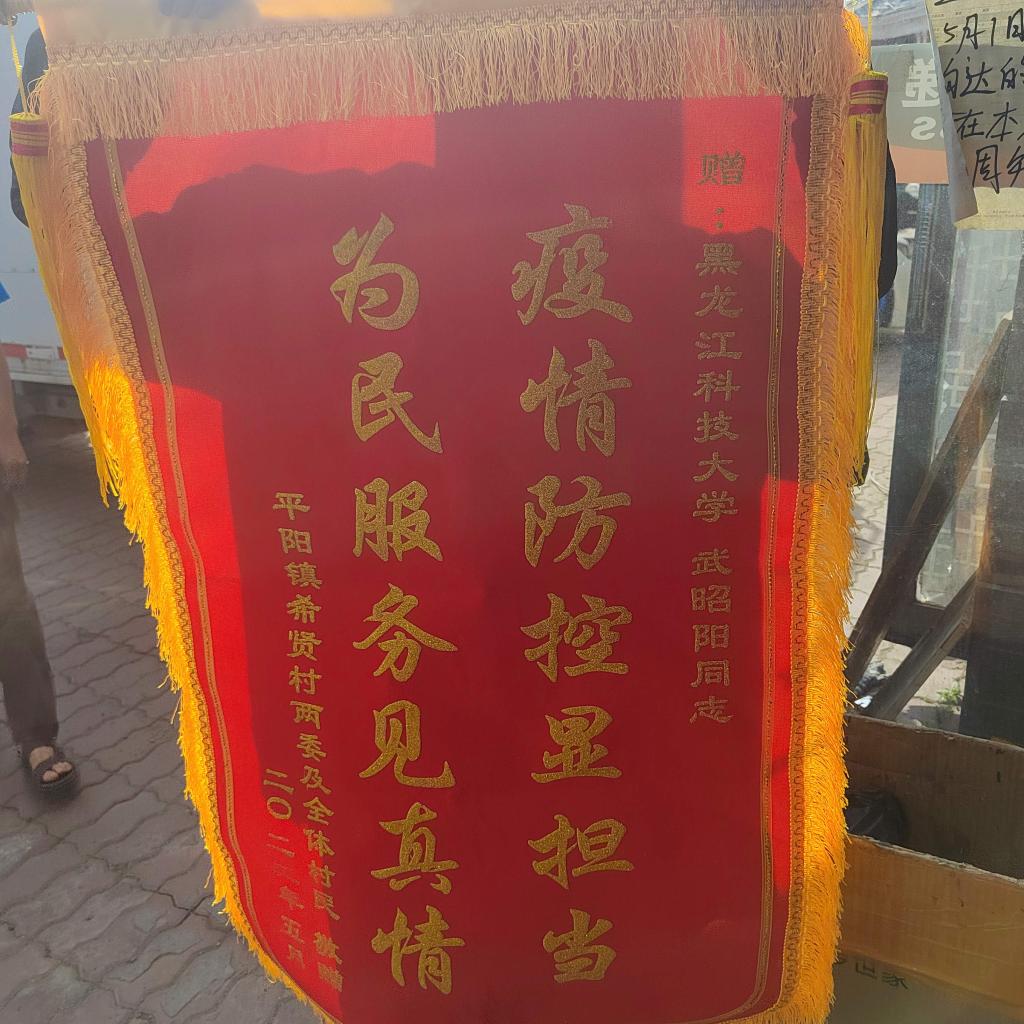 赠:黑龙江科技大学 武昭阳同志
疫情防控显担当
为民服务见真情
平阳镇希贤村两委及全体村民 敬赠
二〇二二年五月
5月1日
的
在本
周年